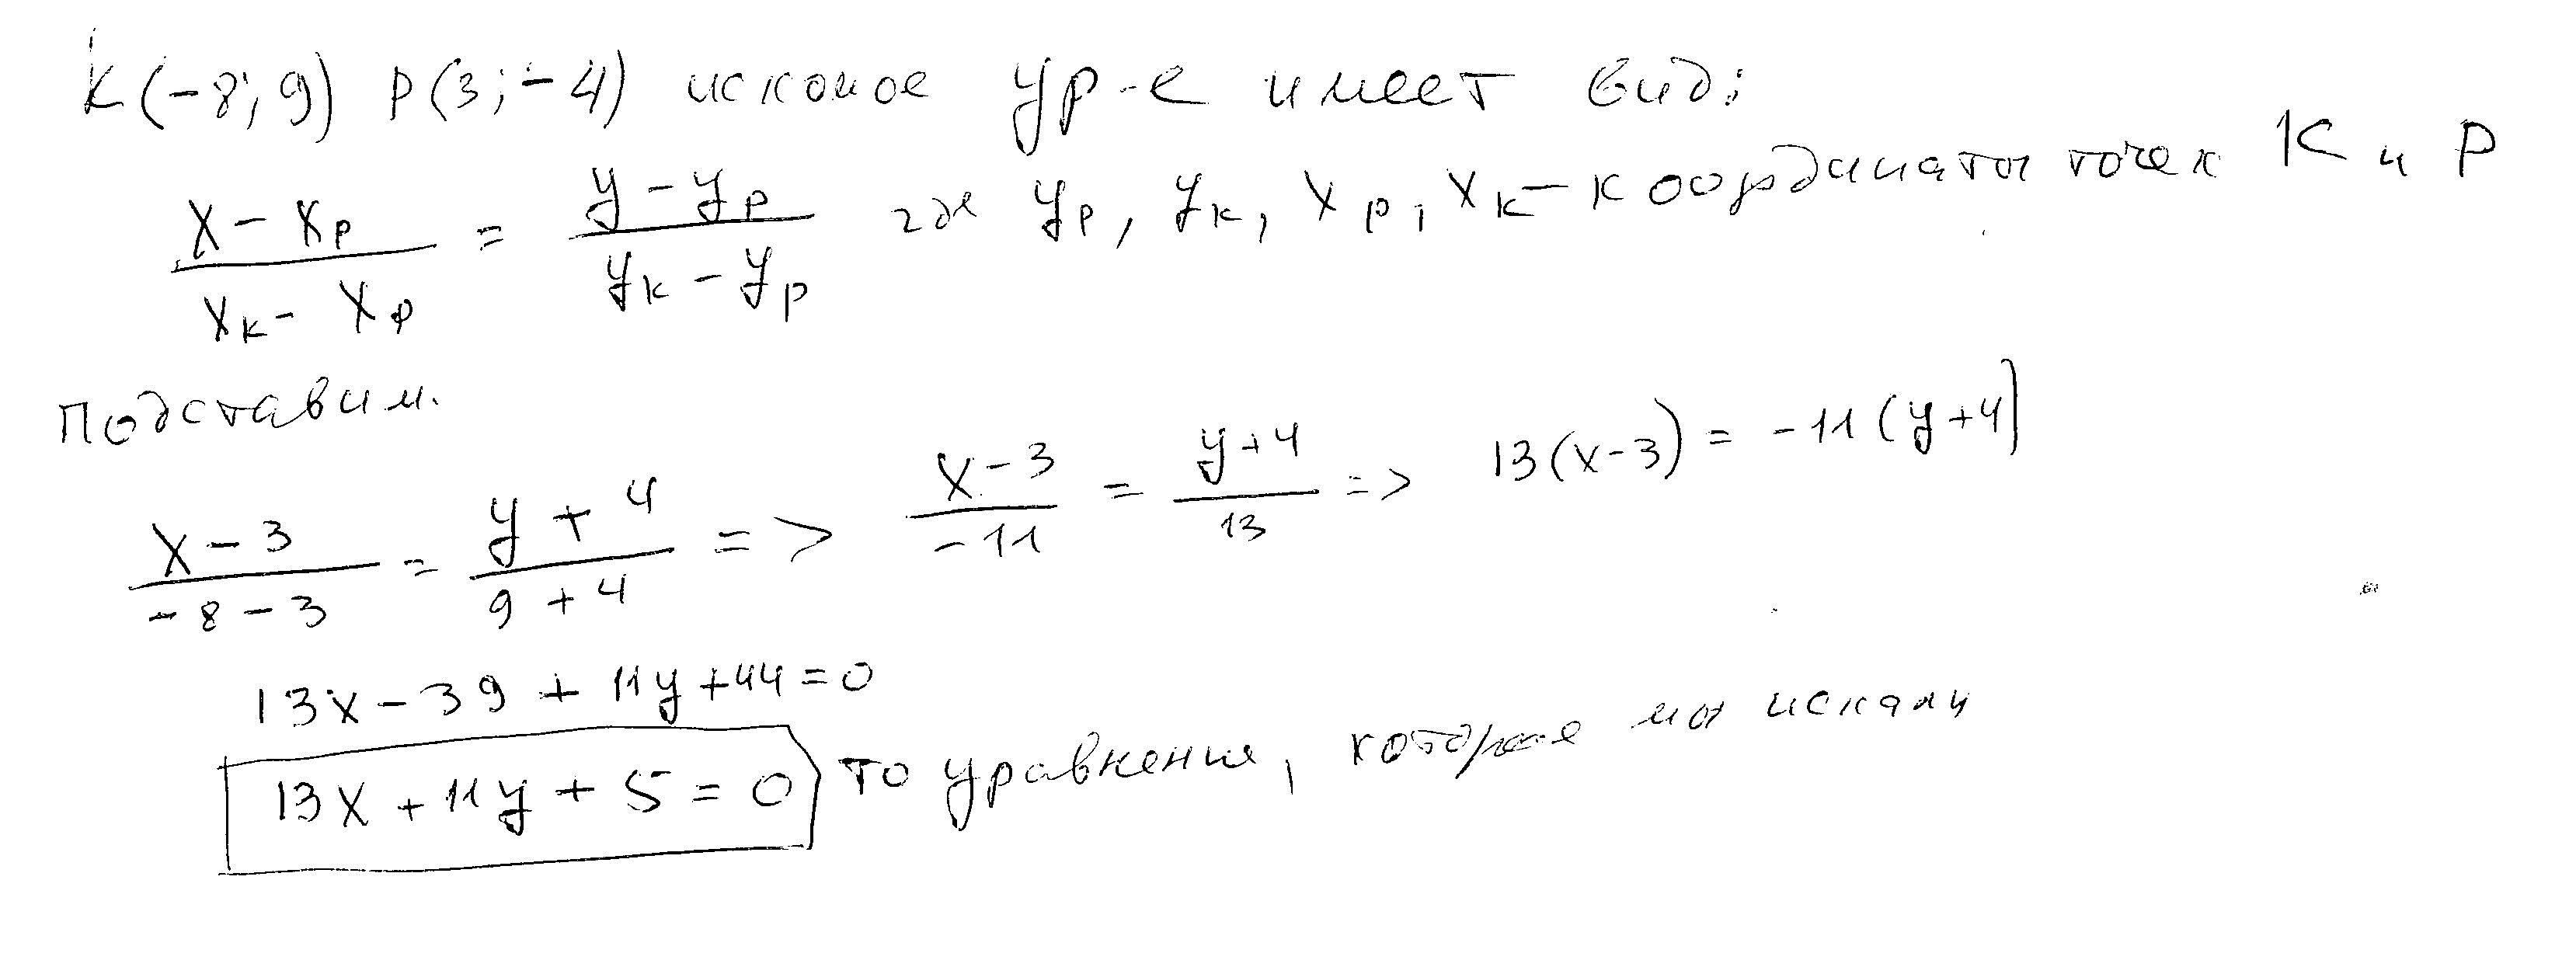 K(-8; 9) P(3; -4) искомое ур-е имеет вид:
(x - x_P)/(x_K - x_P) = (y - y_P)/(y_K - y_P) где y_P, y_K, x_P, x_K - координаты точек K и P
подставим.
(x - 3)/(-8 - 3) = (y + 4)/(9 + 4) => (x - 3)/(-11) = (y + 4)/13 => 13(x - 3) = -11(y + 4)
13x - 39 + 11y + 44 = 0
13x + 11y + 5 = 0 то уравнение, которое мы искали